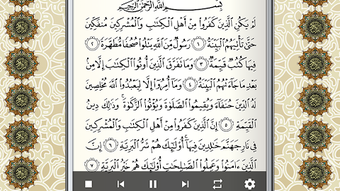 بِسْمِ اللَّهِ الرَّحْمَٰنِ الرَّحِيمِ
لَمْ يَكُنِ الَّذِينَ كَفَرُوا مِنْ أَهْلِ الْكِتَٰبِ وَالْمُشْرِكِينَ مُنفَكِّينَ
حَتَّىٰ تَأْتِيَهُمُ الْبَيِّنَةُ ١ رَسُولٌ مِّنَ اللَّهِ يَتْلُوا صُحُفًا مُّطَهَّرَةً ٢
فِيهَا كُتُبٌ قَيِّمَةٌ ٣ وَمَا تَفَرَّقَ الَّذِينَ أُوتُوا الْكِتَٰبَ إِلَّا مِنْ
بَعْدِ مَا جَاءَتْهُمُ الْبَيِّنَةُ ٤ وَمَا أُمِرُوا إِلَّا لِيَعْبُدُوا اللَّهَ مُخْلِصِينَ
لَهُ الدِّينَ حُنَفَاءَ وَيُقِيمُوا الصَّلَوٰةَ وَيُؤْتُوا الزَّكَوٰةَ وَذَٰلِكَ دِينُ
الْقَيِّمَةِ ٥ إِنَّ الَّذِينَ كَفَرُوا مِنْ أَهْلِ الْكِتَٰبِ وَالْمُشْرِكِينَ
فِي نَارِ جَهَنَّمَ خَٰلِدِينَ فِيهَا أُولَٰئِكَ هُمْ شَرُّ الْبَرِيَّةِ ٦
الَّذِينَ ءَامَنُوا وَعَمِلُوا الصَّٰلِحَٰتِ أُولَٰئِكَ هُمْ خَيْرُ الْبَرِيَّةِ ٧